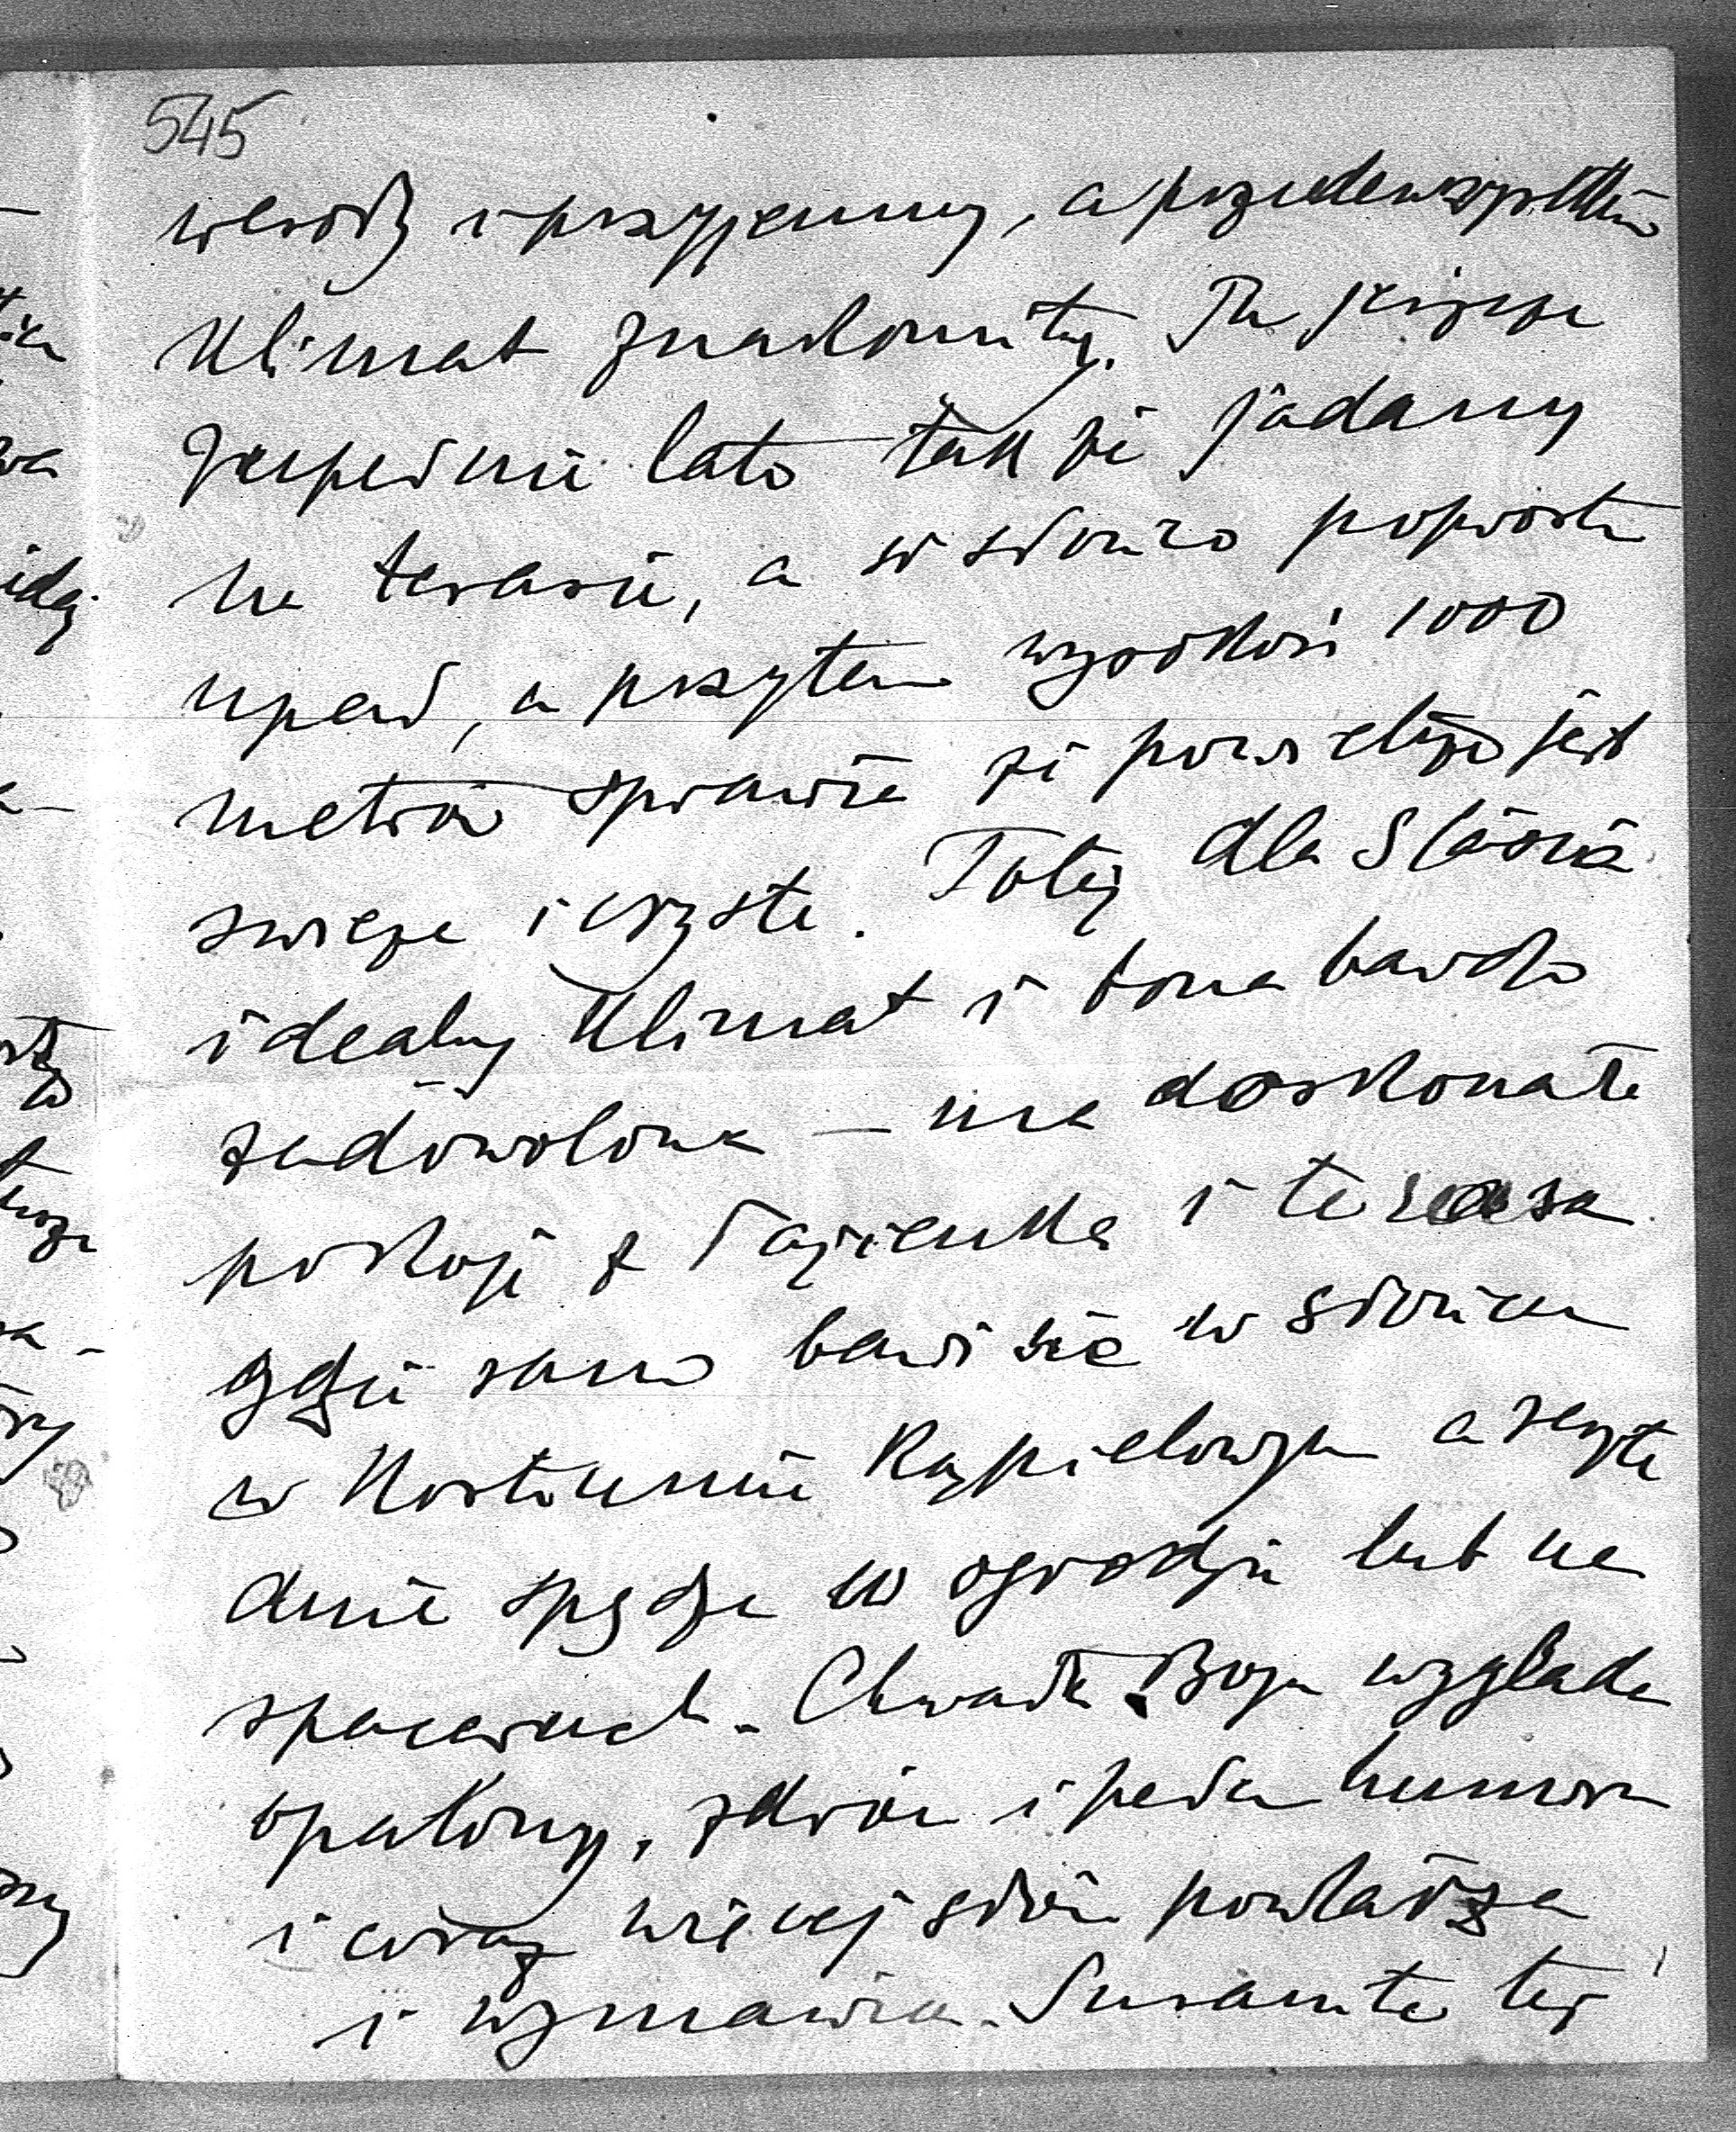 545
wesoły i przyjemny, a przedewszystkiem
klimat znakomity. Tu jeszcze
zupełnie lato tak że jadamy
na terasie, a w słońcu poprostu
upał, a przytem wysokość 1000
metrów sprawia że powietrze jest
świeże i czyste. Toteż dla Stasia
idealny klimat i bona bardzo
zadowolona – ma doskonałe
pokoje z łazienką i terasą
gdzie rano bawi się w słońcu
w kostiumie kąpielowym a resztę
dnia spędza w ogrodzie lub na
spacerach. Chwała Bogu wygląda
opalony, zdrów i pełen humoru
i coraz więcej słów powtarza
i wymawia. Smarunte też